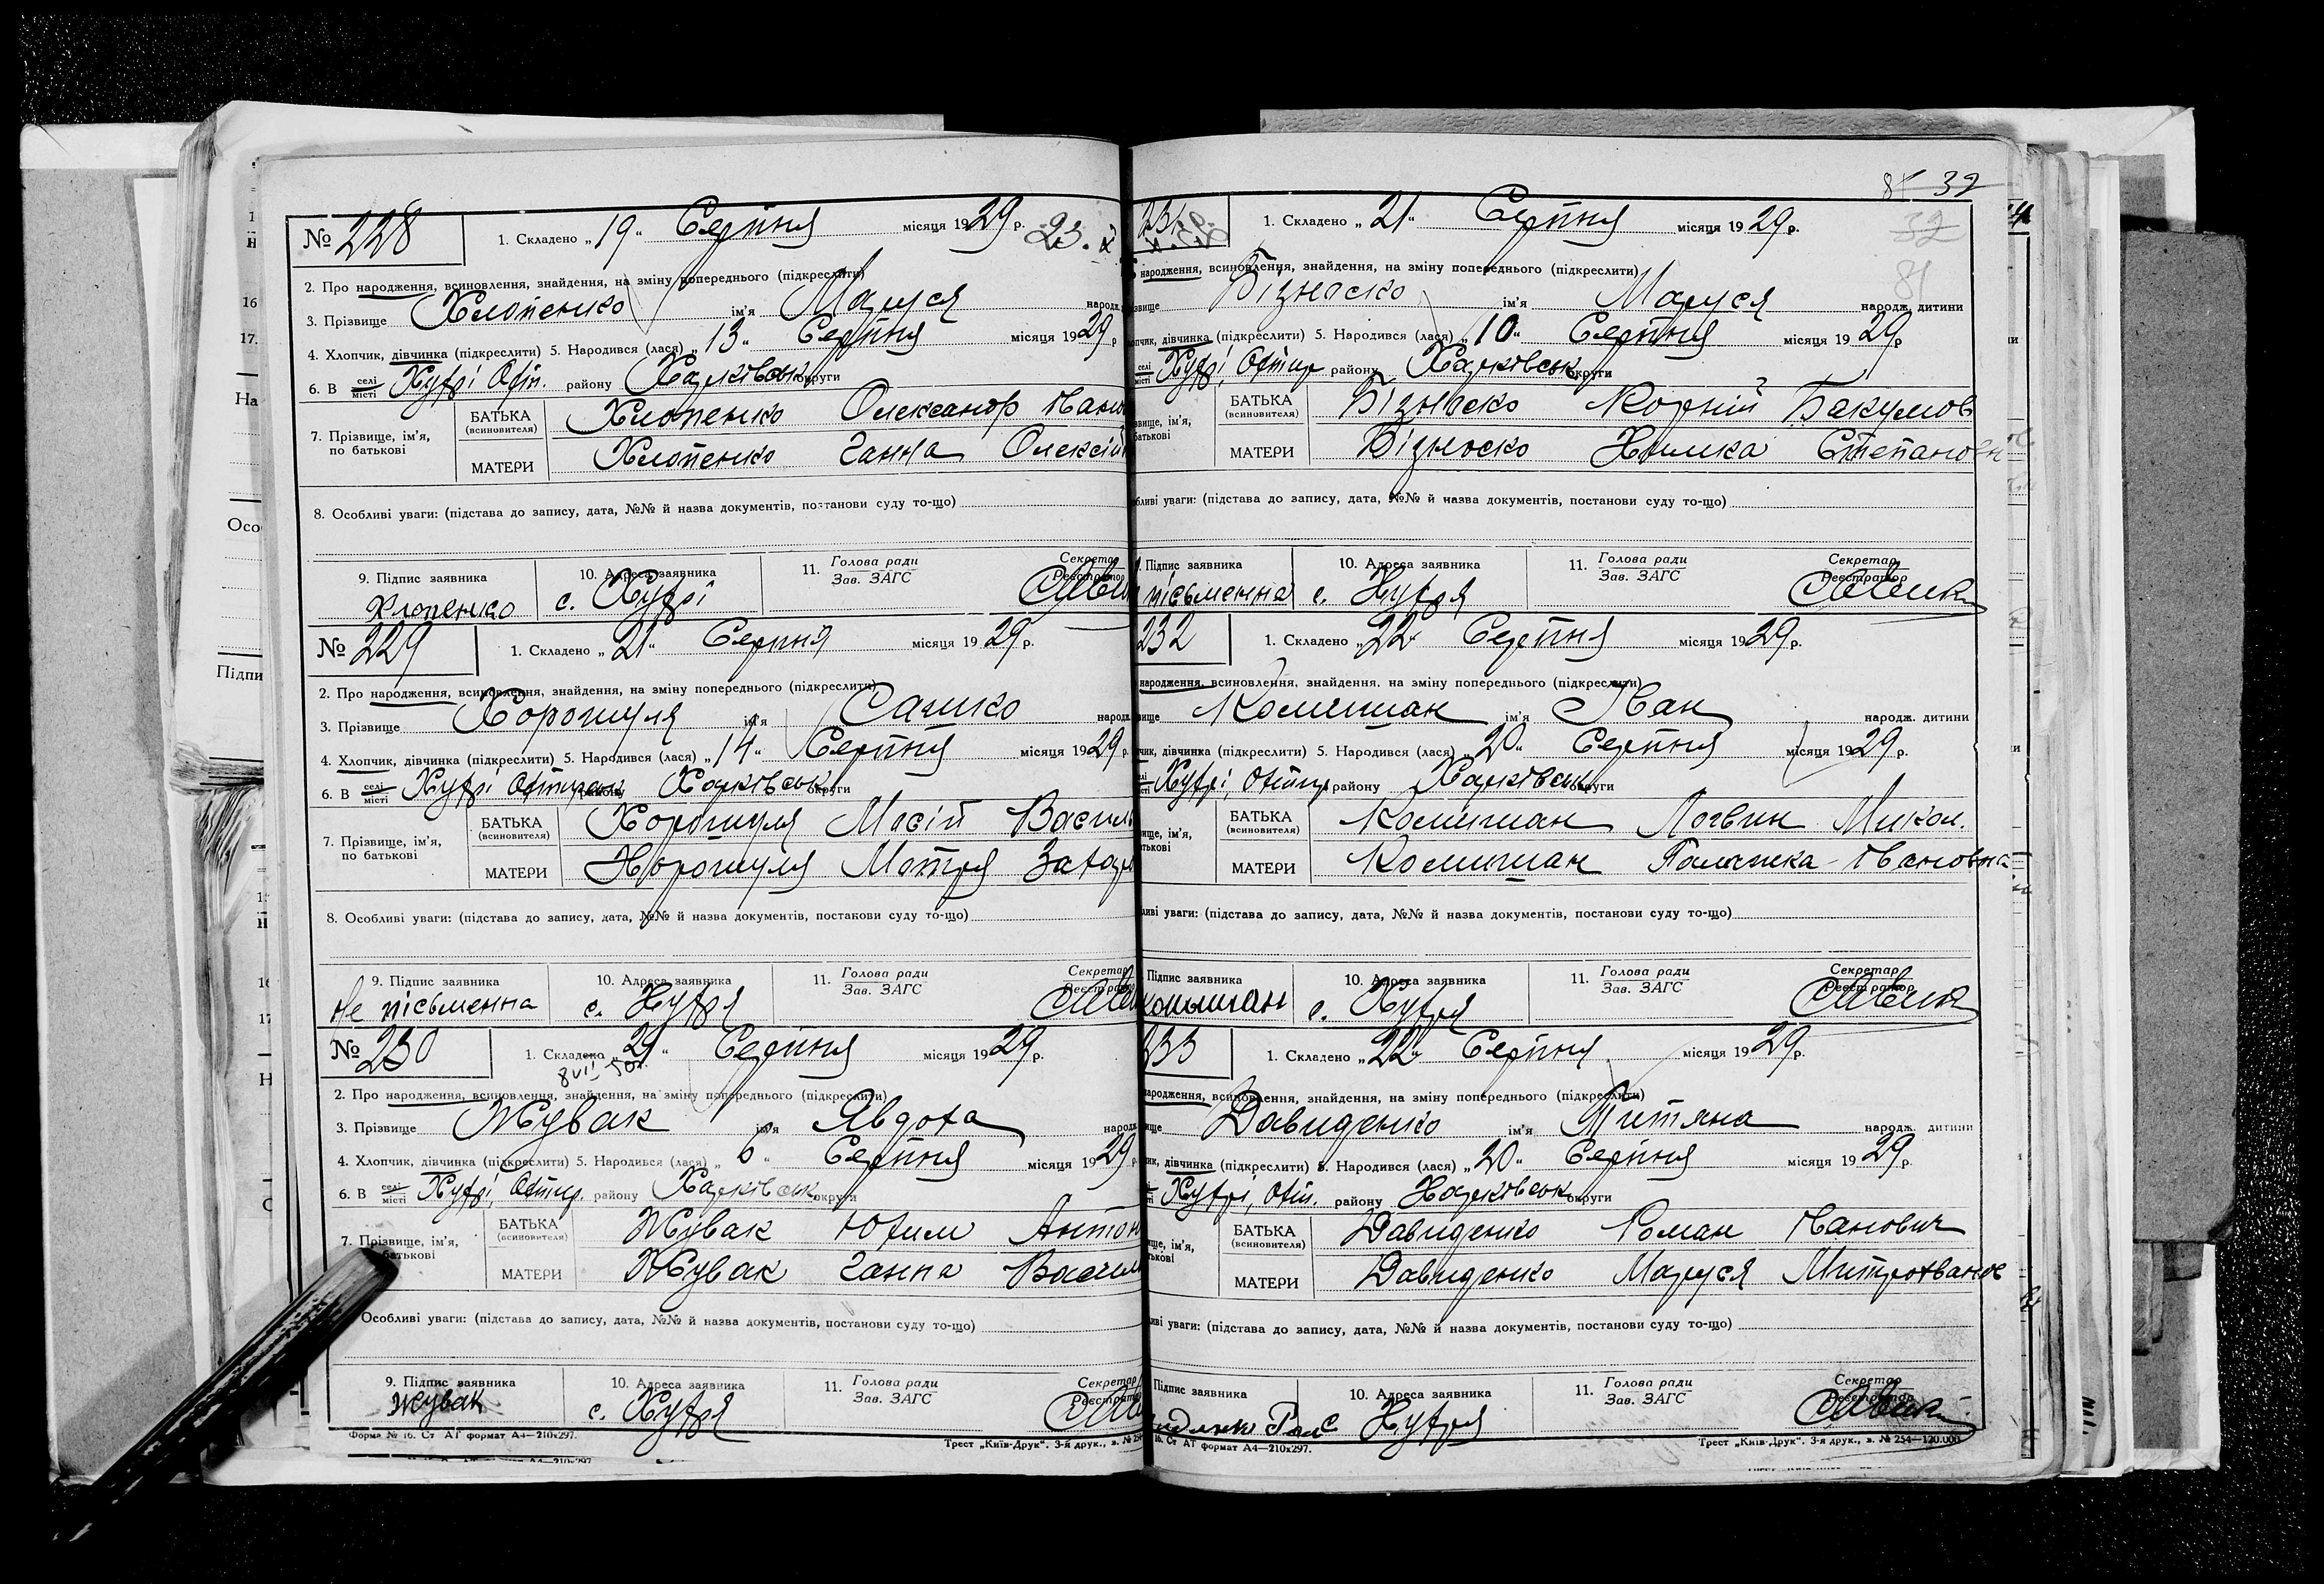 № 228
1. Складено „19" Серпня місяця 1929 р.
2. Про народження, всиновлення, знайдення, на зміну попереднього (підкреслити)
3. Прізвище Хлопенко ім'я Маруся народ
4. Хлопчик, дівчинка (підкреслити) 5. Народився (лася) „13" Серпня місяця 1929 р
6. В селі місті Хухрі Охтп. району Харківськ округи
7. Прізвище, ім'я, по батькові
БАТЬКА (всиновителя) Хлопенко Олександр Івано
МАТЕРИ Хлопенко Ганна Олексій
8. Особливі уваги: (підстава до запису, дата, №№ й назва документів, постанови суду то-що)
9. Підпис заявника 10. Адреса заявника 11. Голова ради Зав. ЗАГС Секретар Реєстратор
Хлопенко с. Хухрі
№ 229
1. Складено „21" Серпня місяця 1929 р.
2. Про народження, всиновлення, знайдення, на зміну попереднього (підкреслити)
3. Прізвище Хорошуля ім'я Сашко народ
4. Хлопчик, дівчинка (підкреслити) 5. Народився (лася) „14" Серпня місяця 1929 р.
6. В селі місті Хухрі Охтирськ району Харківськ округи
7. Прізвище, ім'я, по батькові
БАТЬКА (всиновителя) Хорошуля Масій Василь
МАТЕРИ Хорошуля Мотря Захар
8. Особливі уваги: (підстава до запису, дата, №№ й назва документів, постанови суду то-що)
9. Підпис заявника 10. Адреса заявника 11. Голова ради Зав. ЗАГС Секретар Реєстратор
Не пісьменна с. Хухря
№ 230
1. Складено „21" Серпня місяця 1929 р.
2. Про народження, всиновлення, знайдення, на зміну попереднього (підкреслити)
3. Прізвище Жувак ім'я Явдоха народ
4. Хлопчик, дівчинка (підкреслити) 5. Народився (лася) „6" Серпня місяця 1929 р
6. В селі місті Хухрі, Охтир. району Харківськ округи
7. Прізвище, ім'я, по батькові
БАТЬКА (всиновителя) Жувак Юхим Антон
МАТЕРИ Жувак Ганна Васил
Особливі уваги: (підстава до запису, дата, №№ й назва документів, постанови суду то-що)
9. Підпис заявника 10. Адреса заявника 11. Голова ради Зав. ЗАГС Секретар Реєстратор
Жувак с. Хухря
Форма № 16. Ст АТ формат А4—210х297. Трест „Київ-Друк". 3-я друк., з. № 254
32
81
231
1. Складено „21" Серпня місяця 1929 р.
народження, всиновлення, знайдення, на зміну попереднього (підкреслити)
ізвище Бізноско ім'я Маруся народж. дитини
опчик, дівчинка (підкреслити) 5. Народився (лася) „10" Серпня місяця 1929 р
селі місті Хухрі, Охтир району Харківськ округи
звище, ім'я, батькові
БАТЬКА (всиновителя) Бізноско Корній Бакумов
МАТЕРИ Бізноско Химка Степановн
обливі уваги: (підстава до запису, дата, №№ й назва документів, постанови суду то-що)
Підпис заявника 10. Адреса заявника 11. Голова ради Зав. ЗАГС Секретар Реєстратор
пісьменна с. Хухря
232
1. Складено „22" Серпня місяця 1929 р.
народження, всиновлення, знайдення, на зміну попереднього (підкреслити)
вище Комишан ім'я Іван народж. дитини
чик, дівчинка (підкреслити) 5. Народився (лася) „20" Серпня місяця 1929 р.
Хухрі, Охтир району Харківськ округи
вище, ім'я, тькові
БАТЬКА (всиновителя) Комишан Логвин Микол.
МАТЕРИ Комишан Палажка Івановна
ливі уваги: (підстава до запису, дата, №№ й назва документів, постанови суду то-що)
Підпис заявника 10. Адреса заявника 11. Голова ради Зав. ЗАГС Секретар Реєстратор
Комишан с. Хухря
233
1. Складено „22" Серпня місяця 1929 р.
народження, всиновлення, знайдення, на зміну попереднього (підкреслити)
ище Давиденко ім'я Титяна народж. дитини
ик, дівчинка (підкреслити) 5. Народився (лася) „20" Серпня місяця 1929 р.
Хухрі, Охтп. району Харківськ округи
ище, ім'я, тькові
БАТЬКА (всиновителя) Давиденко Роман Іванович
МАТЕРИ Давиденко Маруся Митрохванов
иві уваги: (підстава до запису, дата, №№ й назва документів, постанови суду то-що)
Підпис заявника 10. Адреса заявника 11. Голова ради Зав. ЗАГС Секретар Реєстратор
с Хухря
16. Ст АТ формат А4—210х297. Трест „Київ-Друк". 3-я друк., з. № 254—120.000